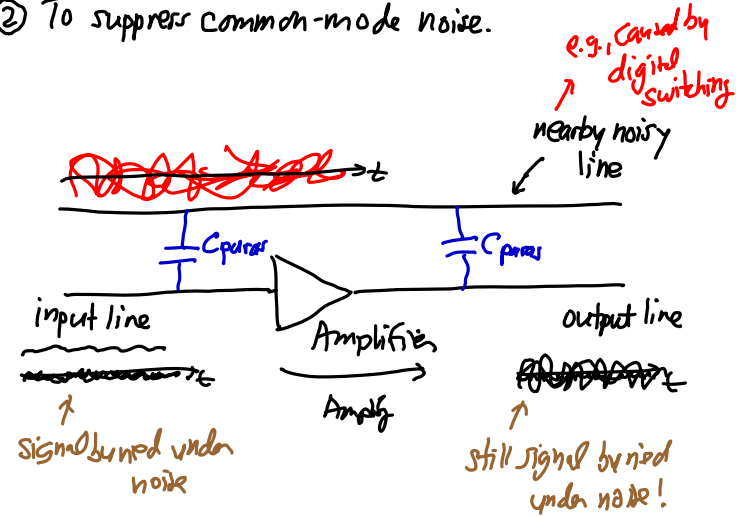 ② To suppress common-mode noise.
e.g., caused by
digital
switching
nearby noisy
line
t
Cparas
Cparas
input line
Amplifier
output line
t
Amplify
t
signal buried under
noise
still signal buried
under noise!